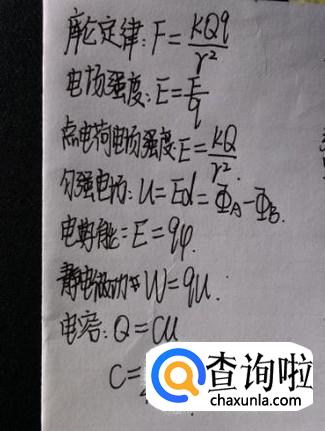 库仑定律: F = kQq/r²
电场强度: E = F/q
点电荷电场强度: E = kQ/r²
匀强电场: U = Ed = Φ_A - Φ_B.
电势能 = E = qφ.
静电做功 W = qU.
电容: Q = CU
C =
查询啦
chaxunla.com